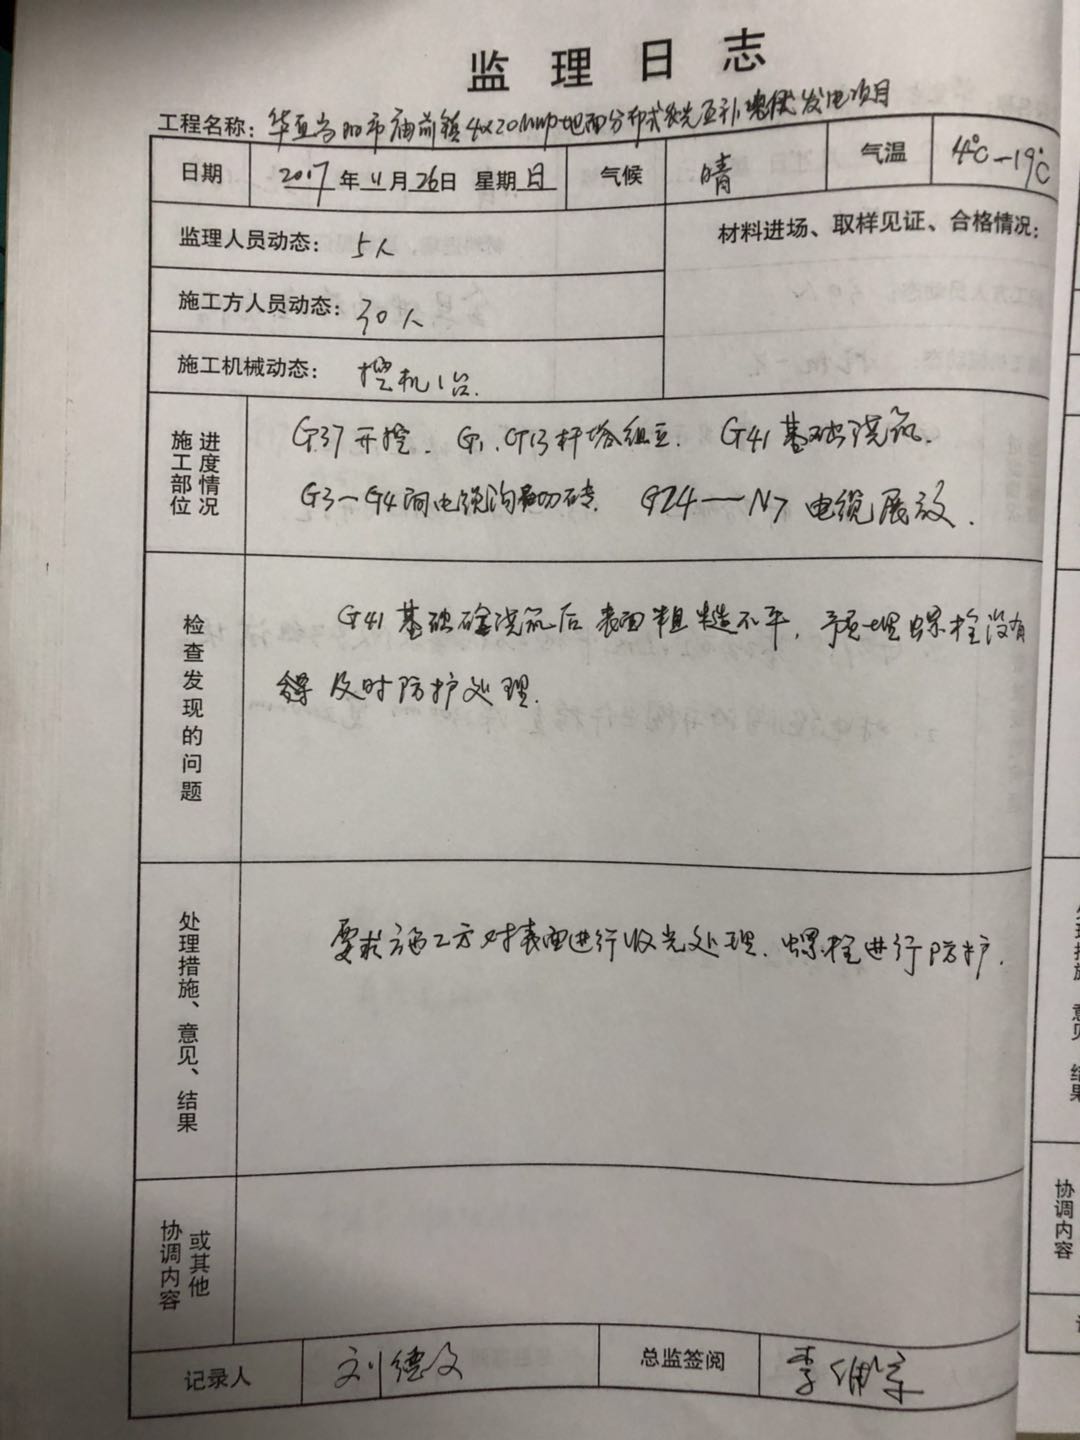 监理日志
工程名称：华亚当阳市庙前镇4x20MWp地面分布式农光互补光伏发电项目
日期 2017年11月26日 星期日 气候 晴 气温 4℃-19℃
监理人员动态：5人
材料进场、取样见证、合格情况：
施工方人员动态：30人
施工机械动态：挖机1台.
施工部位 进度情况
G37开挖. G1.G13杆塔组立. G41基础浇筑.
G3—G4间电缆沟砌砖. G24—N7电缆展放.
检查发现的问题
G41基础砼浇筑后表面粗糙不平,预埋螺栓没有
得及时防护处理.
处理措施、意见、结果
要求施工方对表面进行收光处理.螺栓进行防护.
协调内容 或其他
记录人 刘德文 总监签阅
协调内容